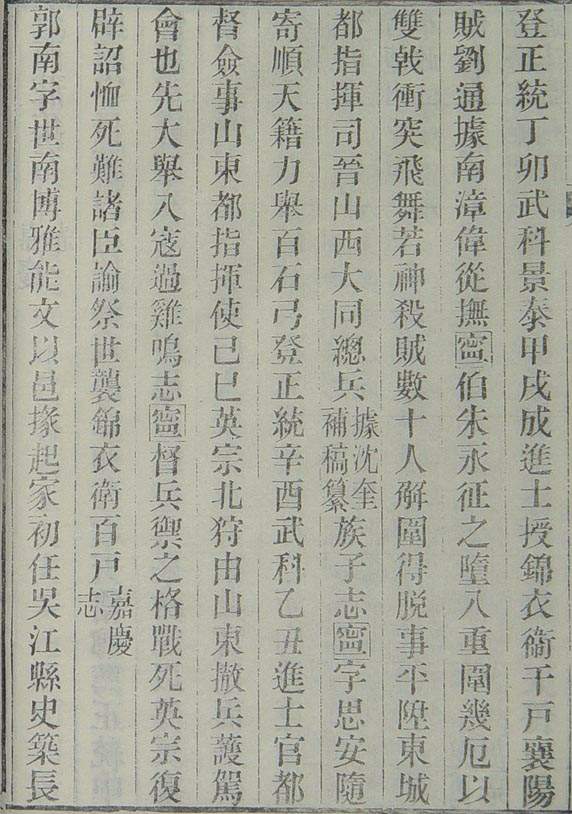 登正統丁卯武科景泰甲戌成進士授錦衣衞千戸襄陽
賊劉通據南漳偉從撫寍伯朱永征之墮八重圍幾厄以
雙戟衝突飛舞若神殺賊數十人解圍得脱事平陞東城
都指揮司晉山西大同總兵據沈奎補稿纂族子志寍字思安隨
寄順天籍力舉百石弓登正統辛酉武科乙丑進士官都
督僉事山東都指揮使己巳英宗北狩由山東撤兵護駕
會也先大舉入寇過雞鳴志寍督兵禦之格戰死英宗復
辟詔恤死難諸臣諭祭世襲錦衣衞百戸嘉慶志
郭南字世南博雅能文以邑掾起家初任吳江縣史築長